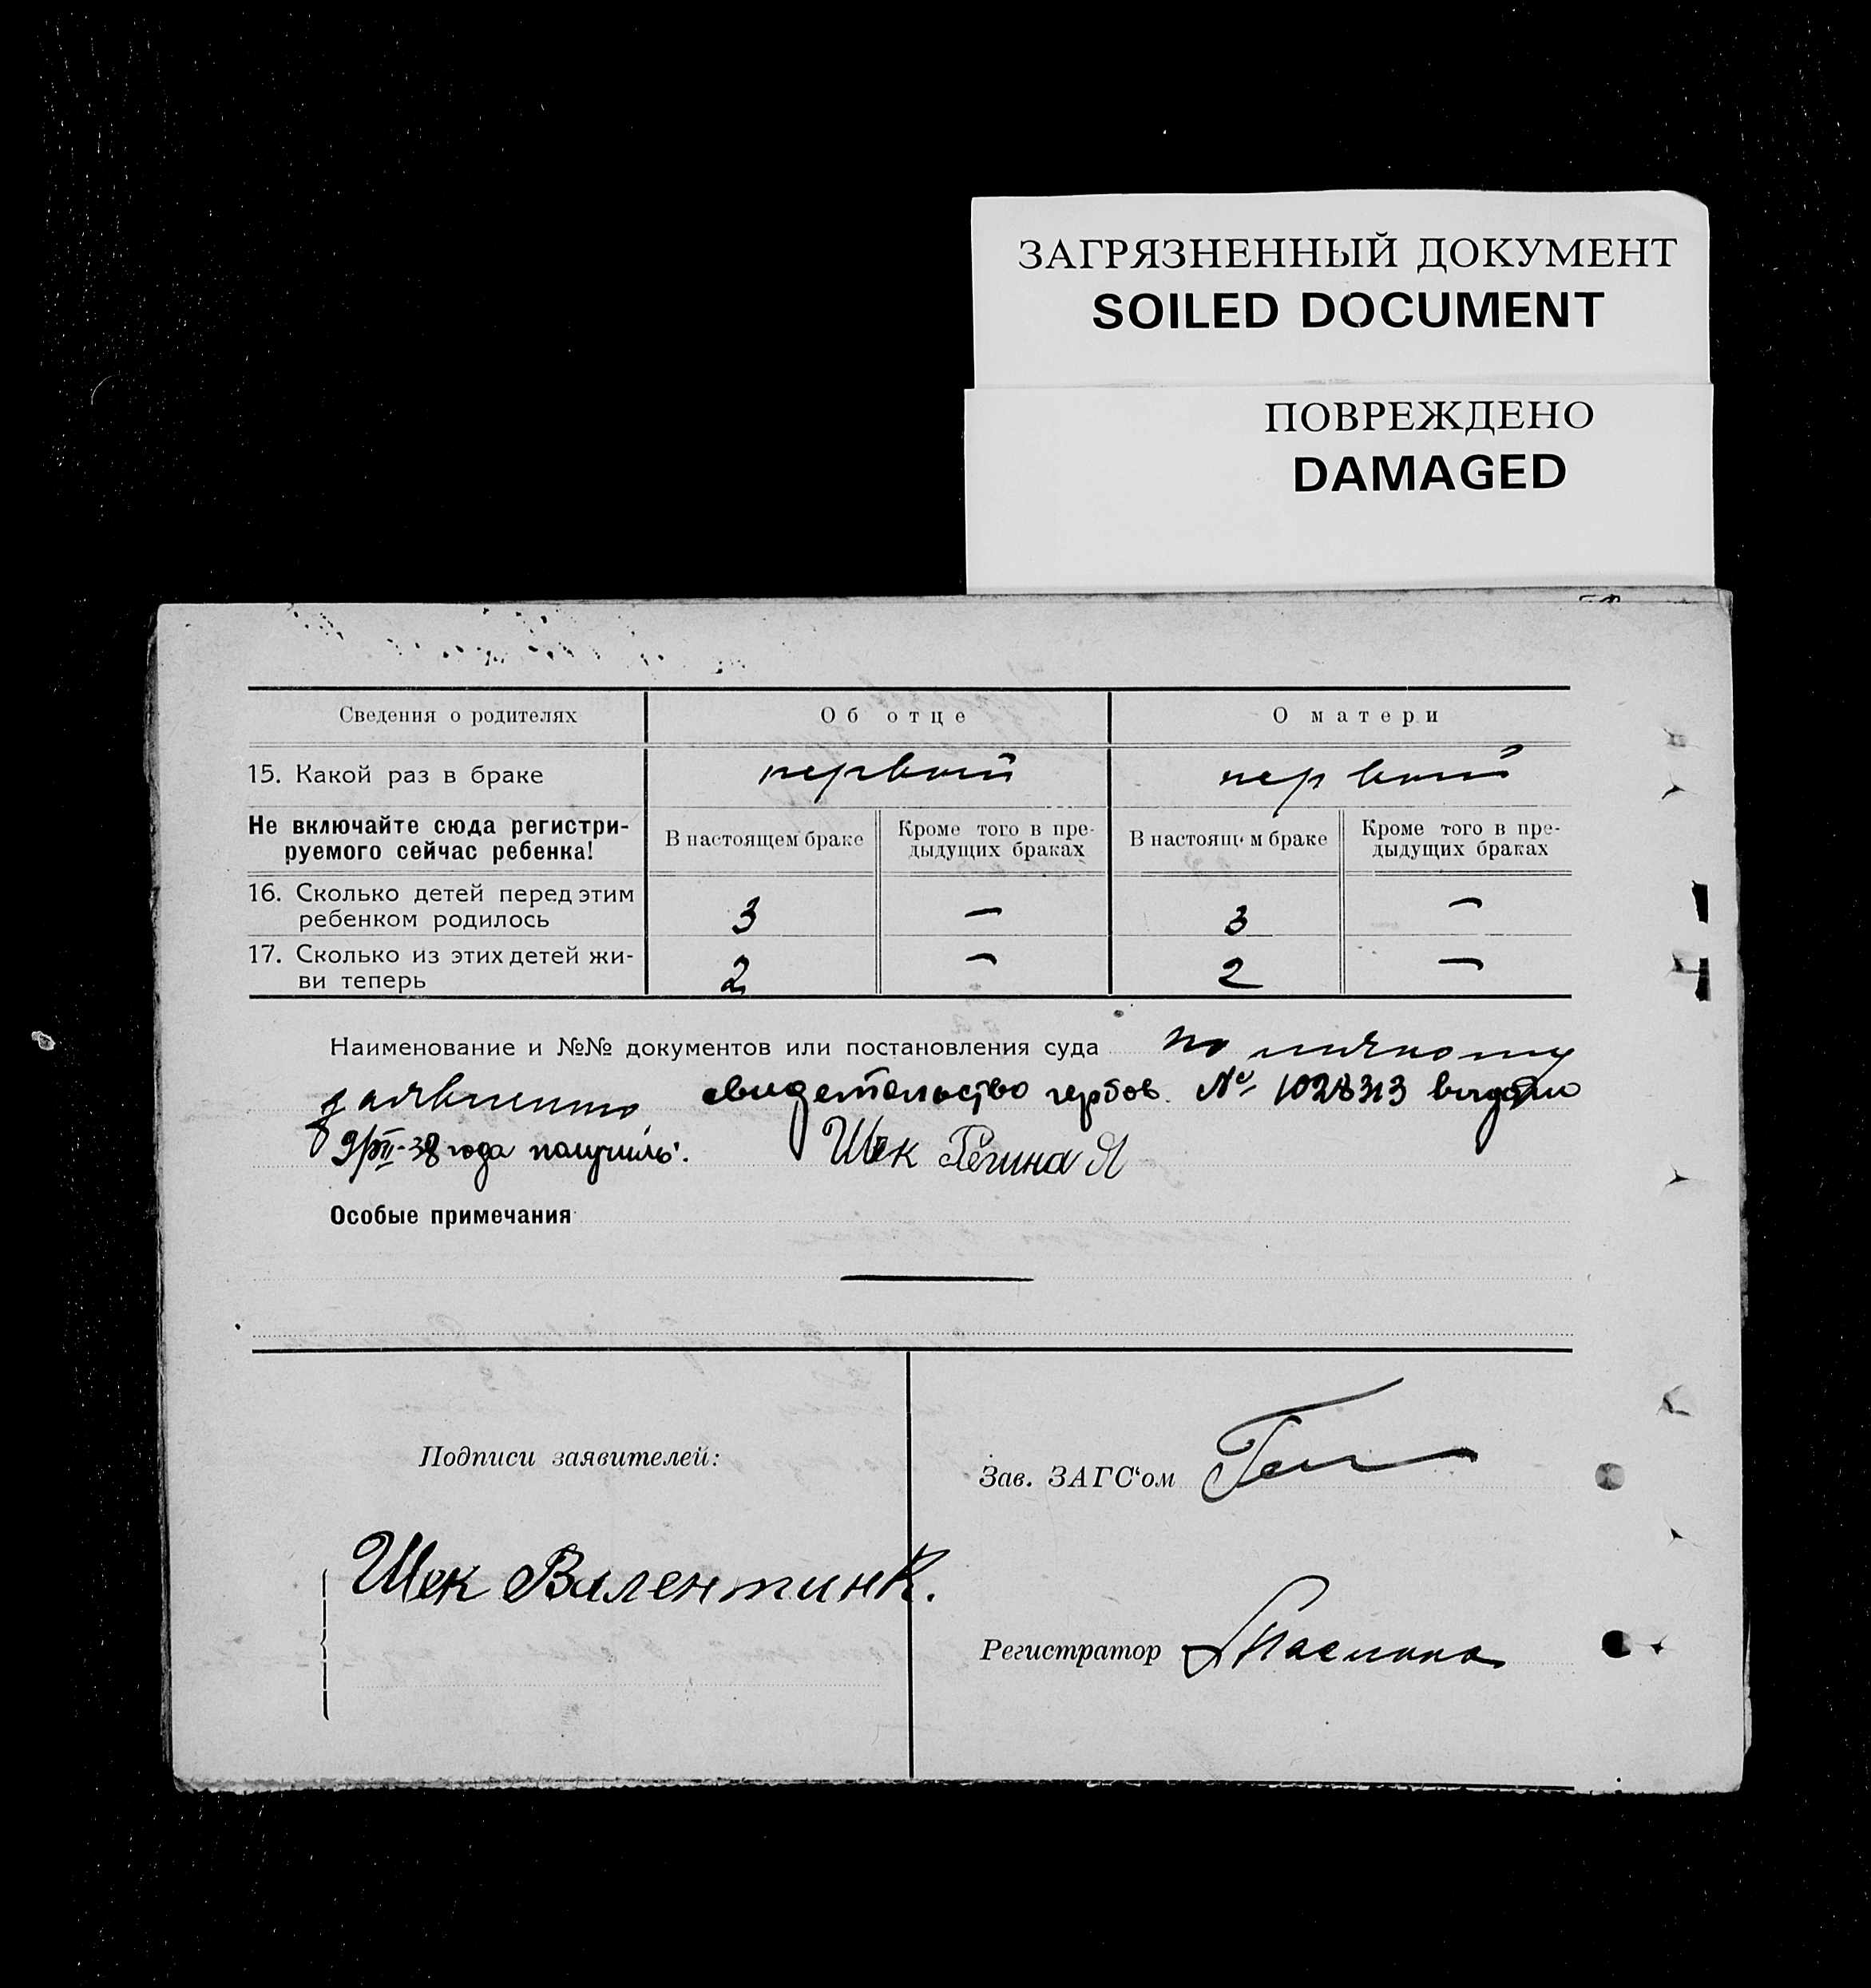 ЗАГРЯЗНЕННЫЙ ДОКУМЕНТ
SOILED DOCUMENT
ПОВРЕЖДЕНО
DAMAGED
Сведения о родителях Об отце О матери
15. Какой раз в браке первый первый
Не включайте сюда регистри-
руемого сейчас ребенка!
В настоящем браке Кроме того в пре-
дыдущих браках
В настоящем браке Кроме того в пре-
дыдущих браках
16. Сколько детей перед этим
ребенком родилось 3 — 3 —
17. Сколько из этих детей жи-
ви теперь 2 — 2 —
Наименование и №№ документов или постановления суда по личному
заявлению свидетельство гербов. № 1028313 выдано
9/VII-38 года получилъ: Шек Регина Я
Особые примечания
Подписи заявителей:
Зав. ЗАГС‘ом
Шек Валентин К.
Регистратор